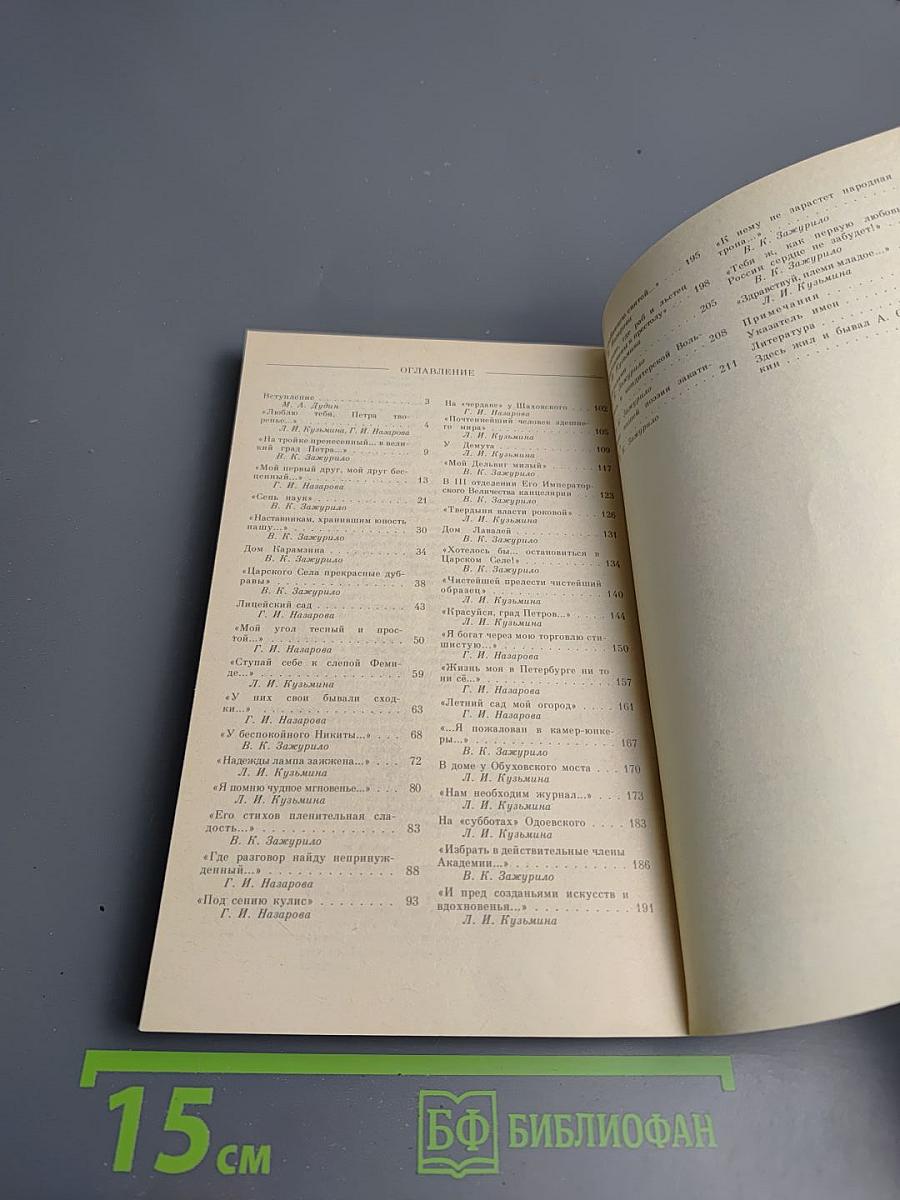 ОГЛАВЛЕНИЕ
Вступление . . . 3
М. А. Дудин
«Люблю тебя, Петра тво-
ренье...» . . . 4
Л. И. Кузьмина, Г. И. Назарова
«На тройке пренесенный... в вели-
кий град Петра...» . . . 9
В. К. Зажурило
«Мой первый друг, мой друг бес-
ценный...» . . . 13
Г. И. Назарова
«Сень наук» . . . 21
В. К. Зажурило
«Наставникам, хранившим юность
нашу...» . . . 30
В. К. Зажурило
Дом Карамзина . . . 34
В. К. Зажурило
«Царского Села прекрасные дуб-
равы» . . . 38
В. К. Зажурило
Лицейский сад . . . 43
Г. И. Назарова
«Мой угол тесный и прос-
той...» . . . 50
Г. И. Назарова
«Ступай себе к слепой Феми-
де...» . . . 59
Л. И. Кузьмина
«У них свои бывали сход-
ки...» . . . 63
Г. И. Назарова
«У беспокойного Никиты...» . . . 68
В. К. Зажурило
«Надежды лампа зажжена...» . . . 72
Л. И. Кузьмина
«Я помню чудное мгновенье...» . . . 80
Л. И. Кузьмина
«Его стихов пленительная сла-
дость...» . . . 83
В. К. Зажурило
«Где разговор найду непринуж-
денный...» . . . 88
Г. И. Назарова
«Под сению кулис» . . . 93
Г. И. Назарова
На «чердаке» у Шаховского . . . 102
Г. И. Назарова
«Почтеннейший человек здешне-
го мира» . . . 105
Л. И. Кузьмина
У Демута . . . 109
Л. И. Кузьмина
«Мой Дельвиг милый» . . . 117
В. К. Зажурило
В III отделении Его Император-
ского Величества канцелярии . . 123
В. К. Зажурило
«Твердыня власти роковой» . . . 126
Л. И. Кузьмина
Дом Лавалей . . . 131
В. К. Зажурило
«Хотелось бы... остановиться в
Царском Селе!» . . . 134
В. К. Зажурило
«Чистейшей прелести чистейший
образец» . . . 140
Л. И. Кузьмина
«Красуйся, град Петров...» . . . 144
Л. И. Кузьмина
«Я богат через мою торговлю сти-
шистую...» . . . 150
Г. И. Назарова
«Жизнь моя в Петербурге ни то
ни сё...» . . . 157
Г. И. Назарова
«Летний сад мой огород» . . . 161
Г. И. Назарова
«...Я пожалован в камер-юнке-
ры...» . . . 167
В. К. Зажурило
В доме у Обуховского моста . . . 170
Л. И. Кузьмина
«Нам необходим журнал...» . . . 173
Л. И. Кузьмина
На «субботах» Одоевского . . . 183
Л. И. Кузьмина
«Избрать в действительные члены
Академии...» . . . 186
В. К. Зажурило
«И пред созданьями искусств и
вдохновенья...» . . . 191
Л. И. Кузьмина
святой...» . . . 195
где раб и льстец
к престолу» . . . 198
Кузьмина
205
Зажурило
кондитерской Воль-
208
Зажурило
поэзии закати-
211
Зажурило
«К нему не зарастет народная
тропа...»
В. К. Зажурило
«Тебя ж, как первую любовь,
России сердце не забудет!»
В. К. Зажурило
«Здравствуй, племя младое...»
Л. И. Кузьмина
Примечания
Указатель имен
Литература
Здесь жил и бывал А. С.
кин
15 см
БФ БИБЛИОФАН